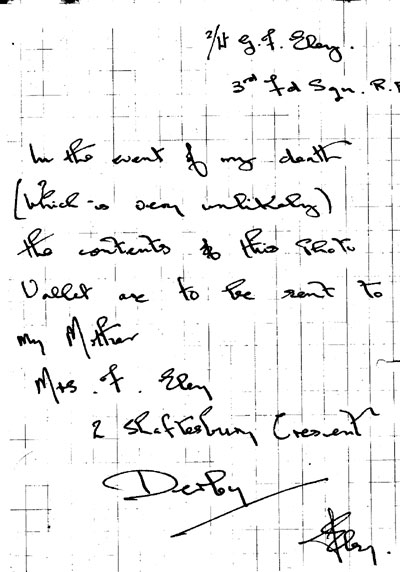 2/Lt G. F. Eley.
3rd Fd Sqn. R.
In the event of my death
(Which is very unlikely)
the contents of this Photo
Wallet are to be sent to
my Mother
Mrs. F. Eley
2 Shaftesbury Crescent
Derby
Eley.